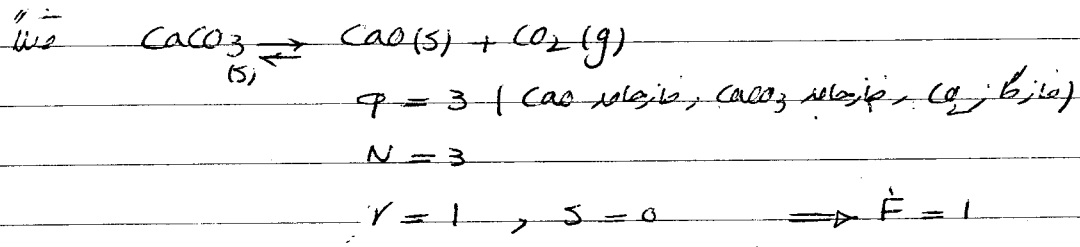 مثلاً CaCO3(s) ⇌ CaO(s) + CO2(g)
φ = 3 (فاز گاز CO2 ، فاز جامد CaCO3 ، فاز جامد CaO)
N = 3
r = 1 , s = 0 ⟹ F = 1